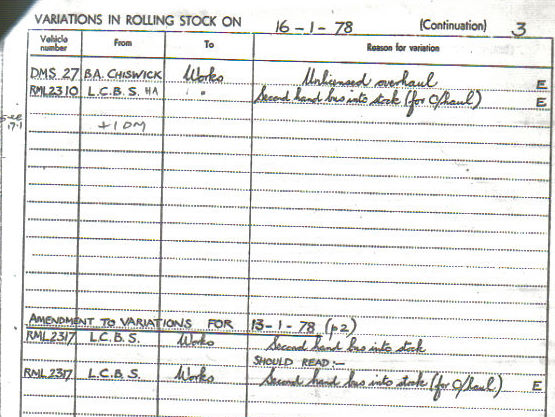 VARIATIONS IN ROLLING STOCK ON 16-1-78 (Continuation) 3
Vehicle number From To Reason for variation
DMS 27 B.A. CHISWICK Works Unlicensed overhaul E
RML2310 L.C.B.S. HA " Second hand bus into stock (for O/haul) E
See 17.1
+10M
AMENDMENT TO VARIATIONS FOR 13-1-78 (p2)
RML2317 L.C.B.S. Works Second hand bus into stock
SHOULD READ:-
RML2317 L.C.B.S. Works Second hand bus into stock (for O/haul) E